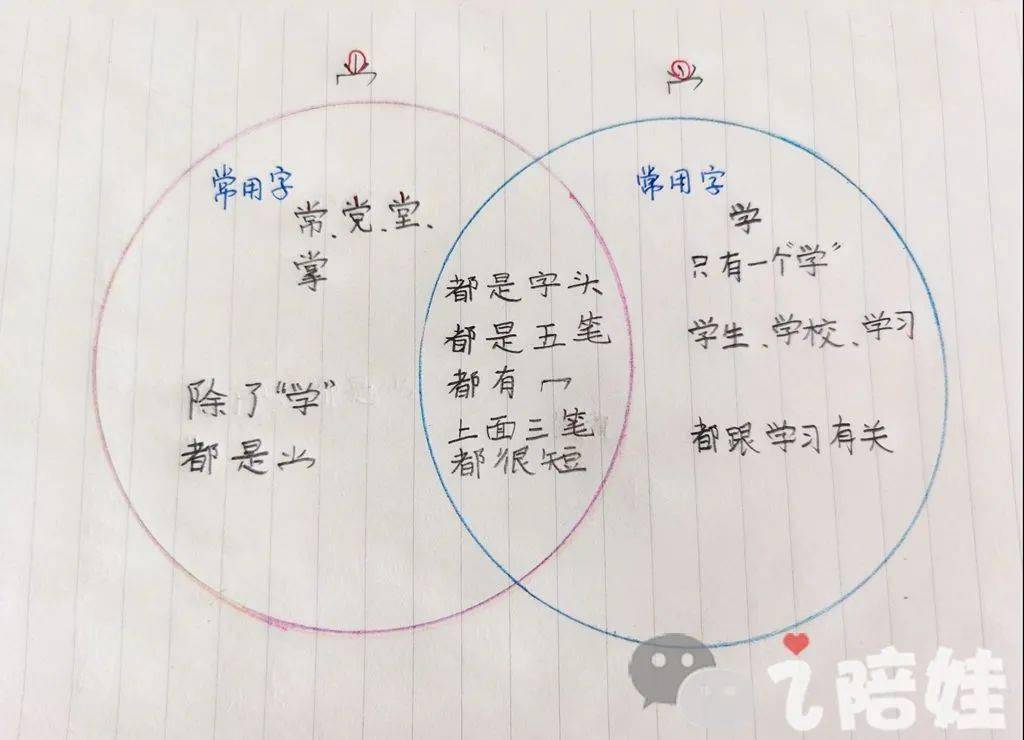 常用字
常、党、堂、
掌
除了“学”
都是⺌
都是字头
都是五笔
都有冖
上面三笔
都很短
常用字
学
只有一个“学”
学生、学校、学习
都跟学习有关
i陪娃